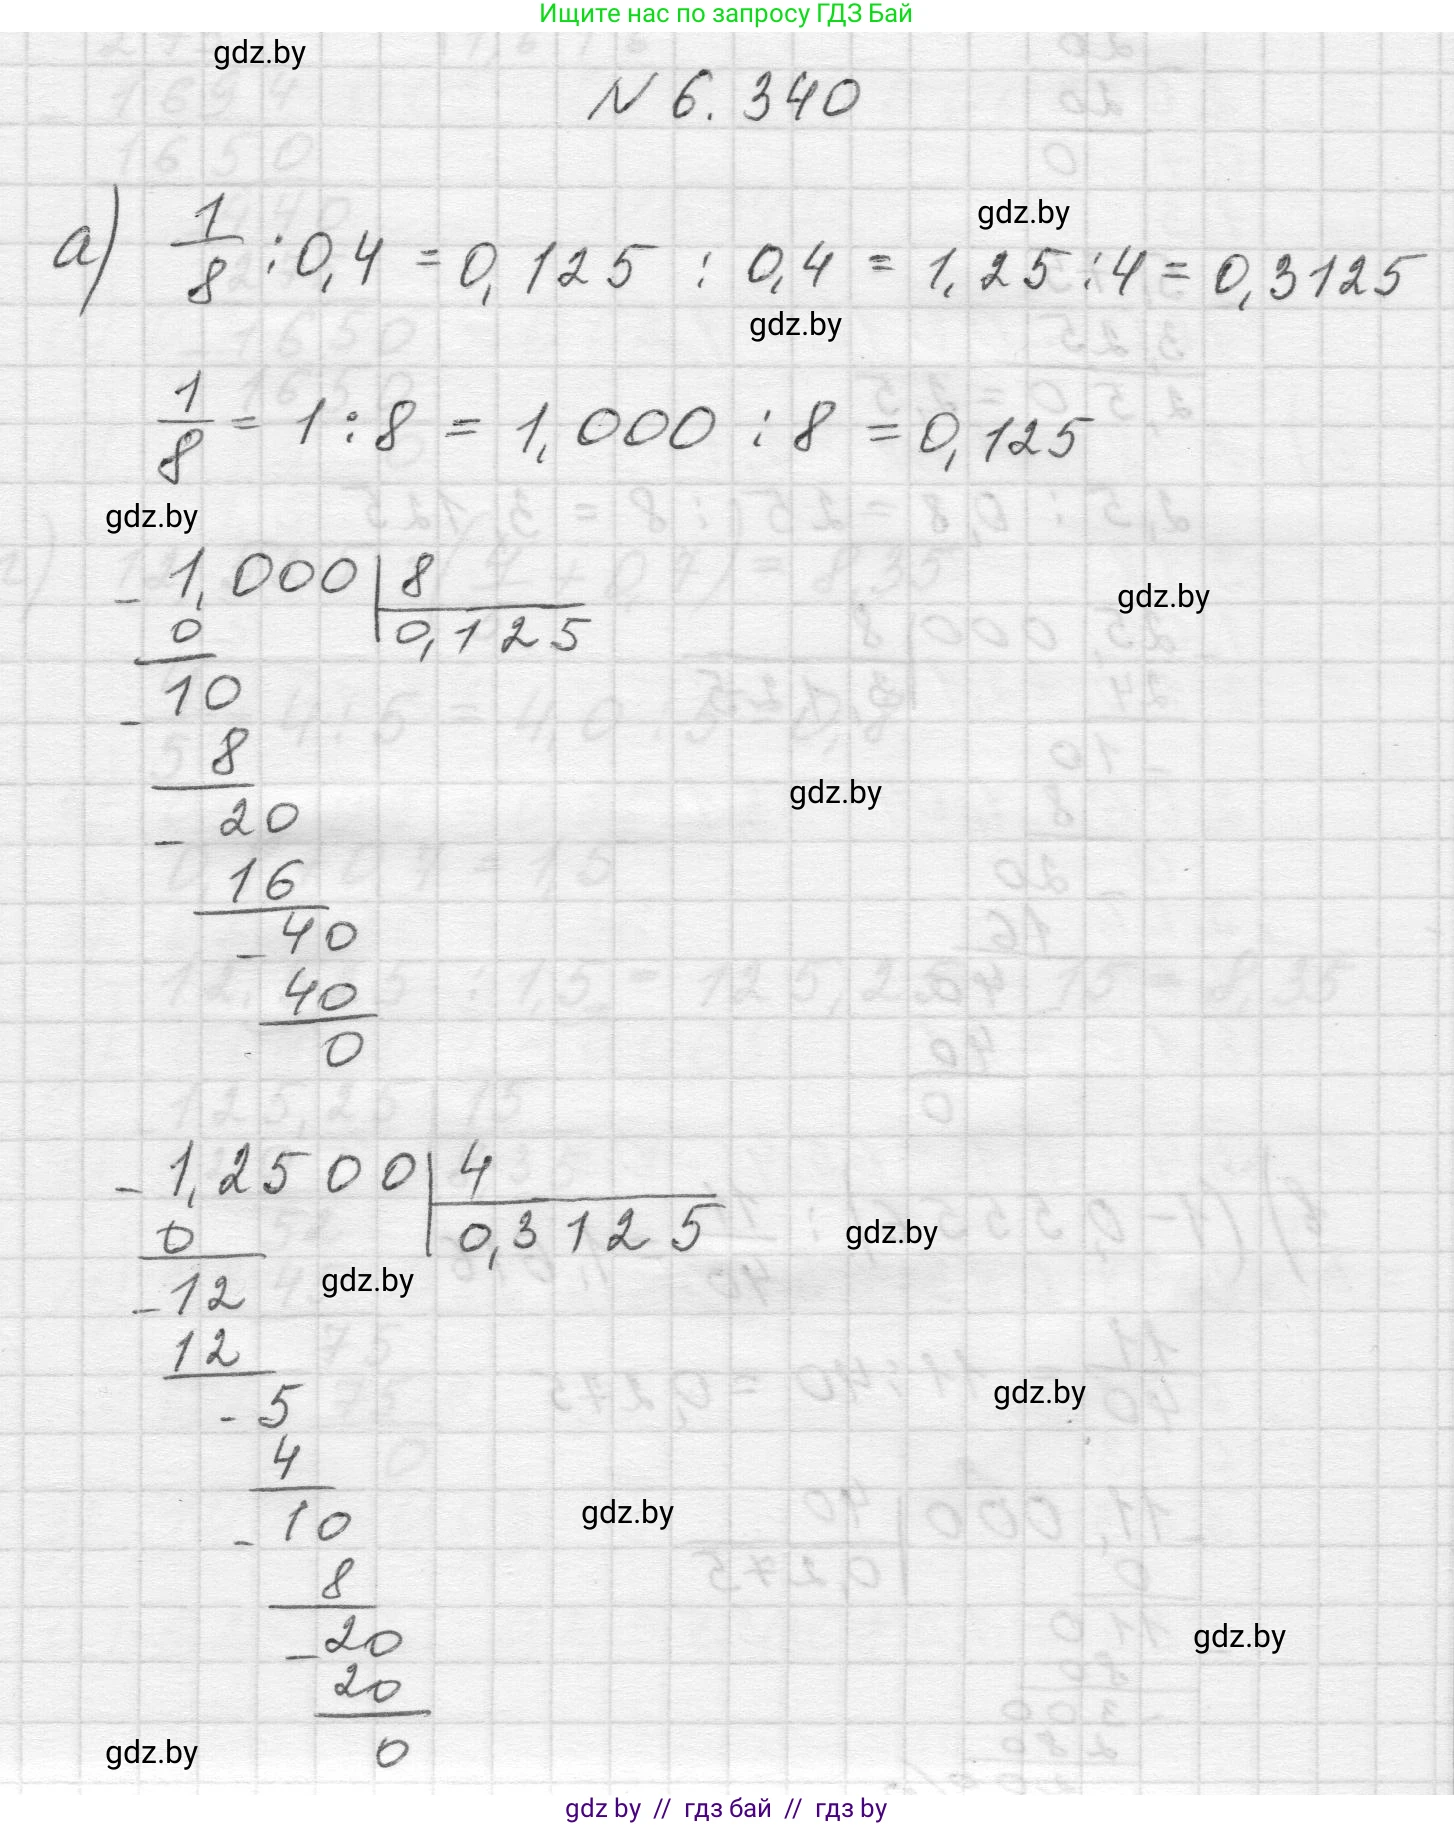 Ищите нас по запросу ГДЗ Бай
gdz.by
N 6.340
gdz.by
а) 1/8 : 0,4 = 0,125 : 0,4 = 1,25 : 4 = 0,3125
gdz.by
1/8 = 1 : 8 = 1,000 : 8 = 0,125
gdz.by
- 1,000 | 8
gdz.by
0 0,125
- 10
8
gdz.by
- 20
16
- 40
40
0
- 1,2500 | 4
0 0,3125
gdz.by
gdz.by
- 12
12
gdz.by
- 5
4
gdz.by
- 10
8
gdz.by
- 20
20
gdz.by
0
gdz by // гдз бай // гдз by